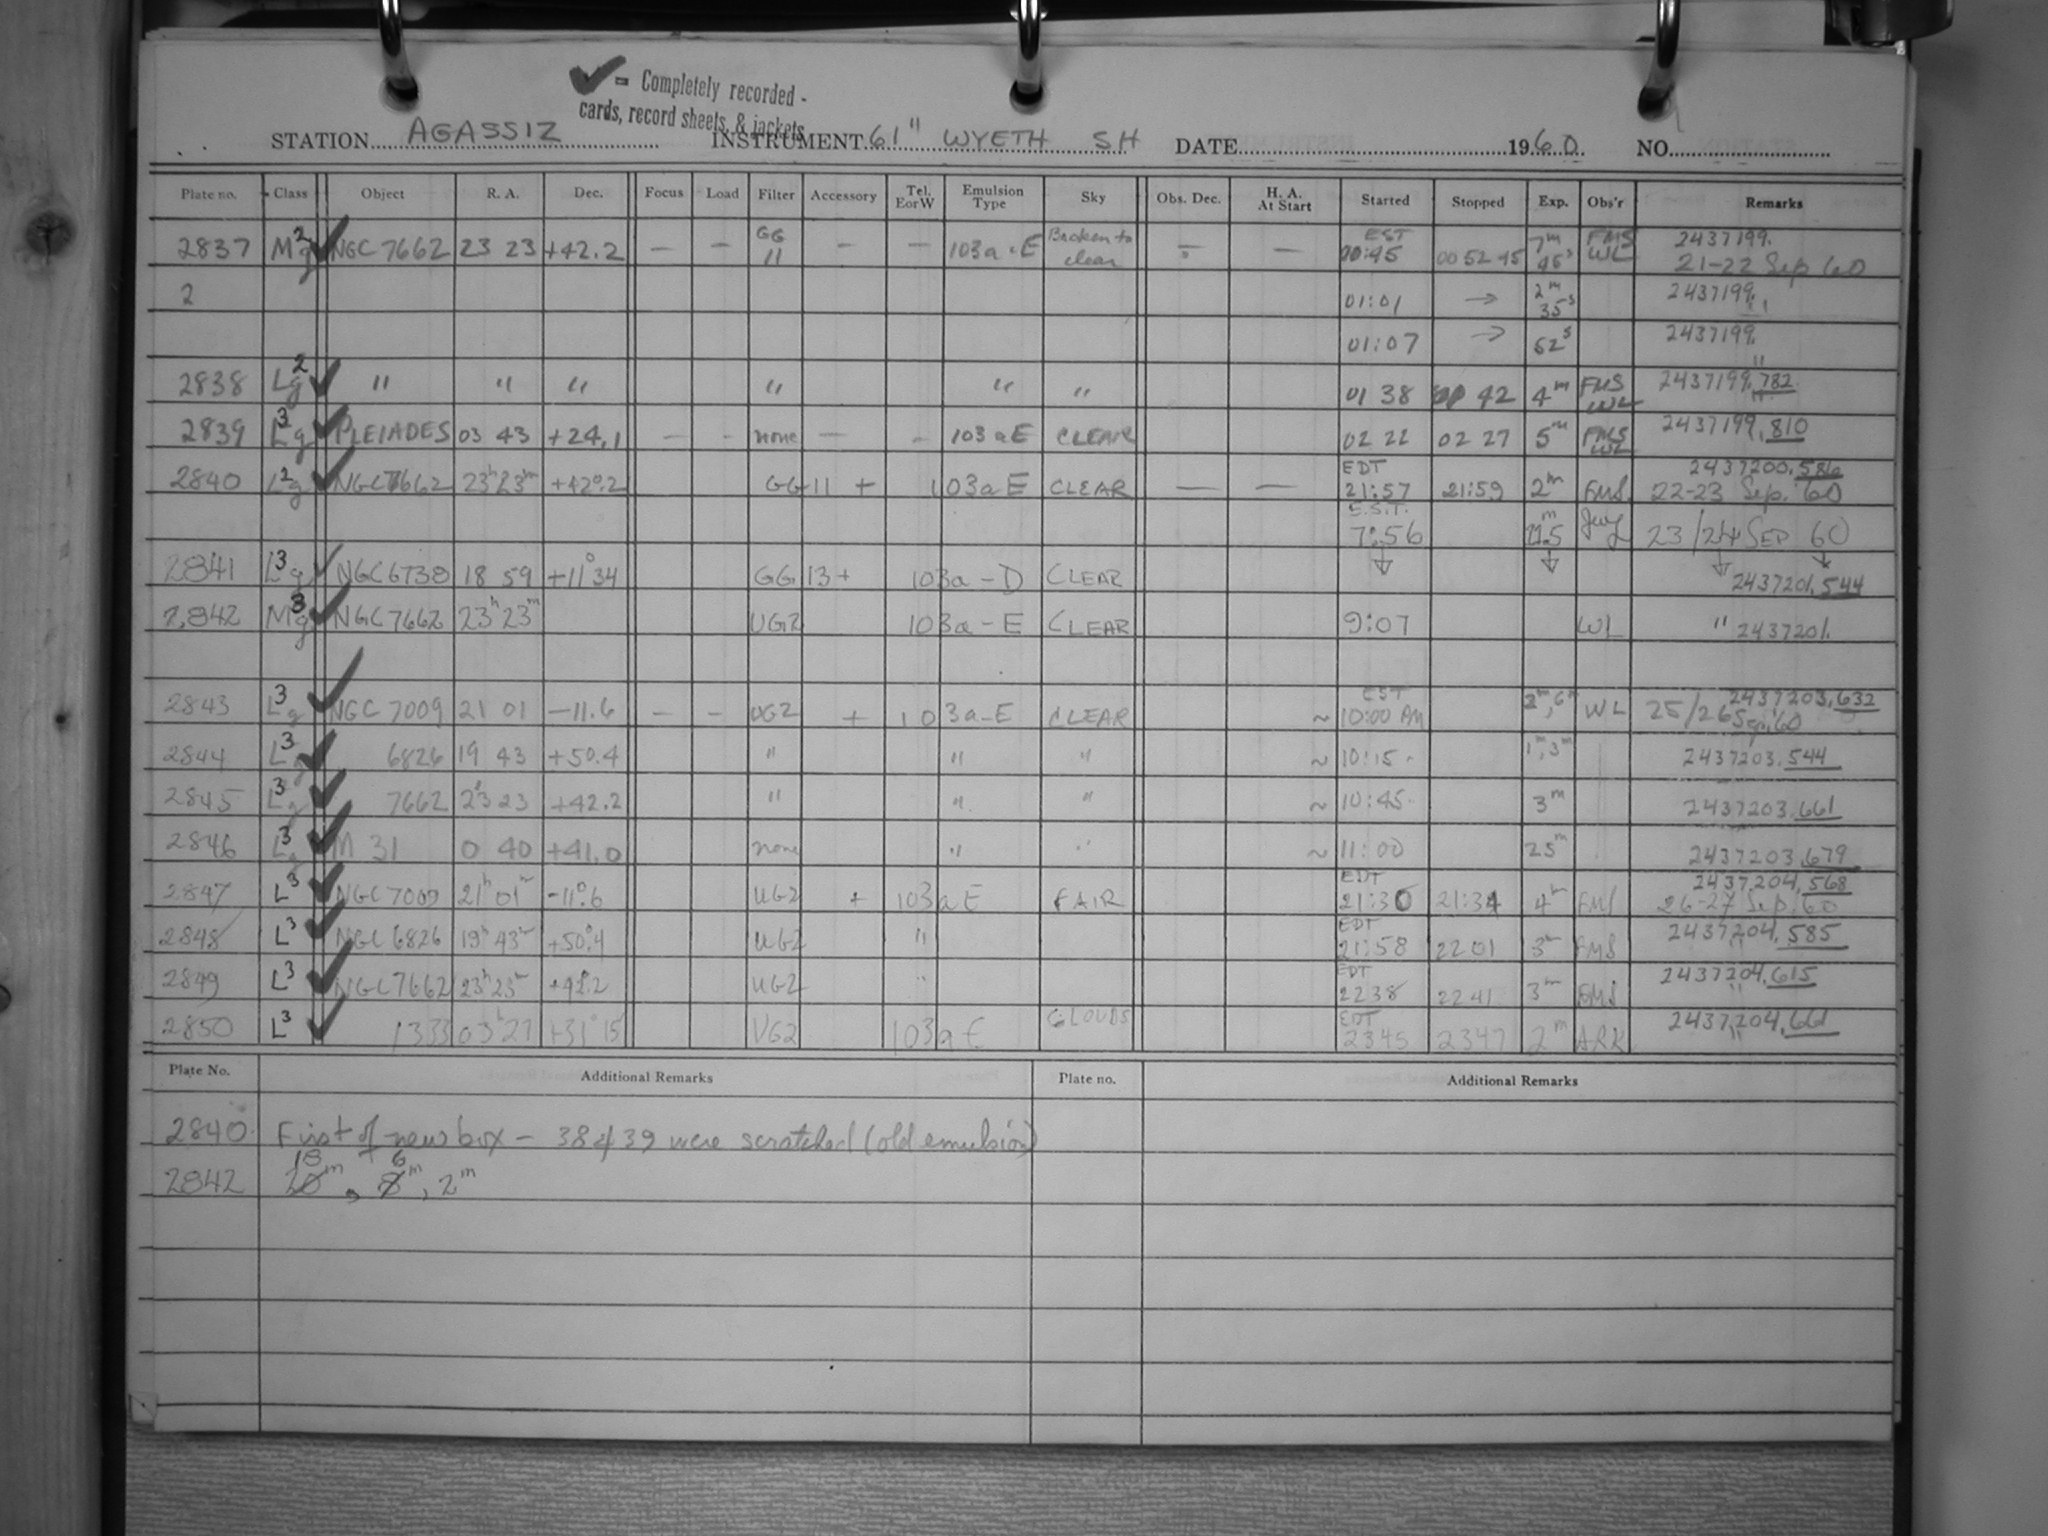 ✓ = Completely recorded -
cards, record sheets, & jackets
STATION AGASSIZ INSTRUMENT 61" WYETH SH DATE 1960 NO.
Plate no. Class Object R. A. Dec. Focus Load Filter Accessory Tel. E or W Emulsion Type Sky Obs. Dec. H. A. At Start Started Stopped Exp. Obs'r Remarks
2837 Mg2 ✓ NGC 7662 23 23 +42.2 — — GG 11 — — 103a-E Broken to clear — — EST 00:45 00 52 45 7m 45s FMS WL 2437199. 21-22 Sep 60
2 01:01 → 2m 35s 2437199.
01:07 → 62s 2437199.
2838 Lg2 ✓ " " " " " " 01 38 42 4m FMS WL 2437199.782
2839 Lg3 ✓ PLEIADES 03 43 +24.1 — — none — — 103aE CLEAR 02 22 02 27 5m FMS WL 2437199.810
2840 L2g ✓ NGC7662 23h23m +42°.2 GG11 + 103aE CLEAR — — EDT 21:57 21:59 2m FMS 2437200.586 22-23 Sep. '60
2841 L3g ✓ NGC6738 18 59 +11°34 GG13 + 103a-D CLEAR E.S.T. 7:56 23/24 SEP 60 2437201.544
2842 Mg3 ✓ NGC7662 23h23m UG2 103a-E CLEAR 9:07 WL " 2437201.
2843 Lg3 ✓ NGC 7009 21 01 -11.6 — — UG2 + 103a-E CLEAR EST ~10:00 PM WL 2437203.632 25/26 Sep. 60
2844 L3 ✓ 6826 19 43 +50.4 " " " ~10:15 1m, 3m 2437203.544
2845 L3g ✓ 7662 23 23 +42.2 " " " ~10:45 3m 2437203.661
2846 L3g ✓ M 31 0 40 +41.0 none " " ~11:00 25m 2437203.679
2847 L3 ✓ NGC7009 21h01m -11°.6 UG2 + 103aE FAIR EDT 21:30 21:34 4m FMS 2437204.568 26-27 Sep. 60
2848 L3 ✓ NGC 6826 19h43m +50°.4 UG2 " EDT 21:58 22 01 3m FMS 2437204.585
2849 L3 ✓ NGC7662 23h23m +42.2 UG2 " EDT 2238 2241 3m FMS 2437204.615
2850 L3 ✓ 1333 03h27 +31°15 UG2 103aE CLOUDS EDT 2345 2347 2m ARK 2437204.661
Plate No. Additional Remarks Plate no. Additional Remarks
2840 First of new box - 38 & 39 were scratched (old emulsion)
2842 18m, 6m, 2m